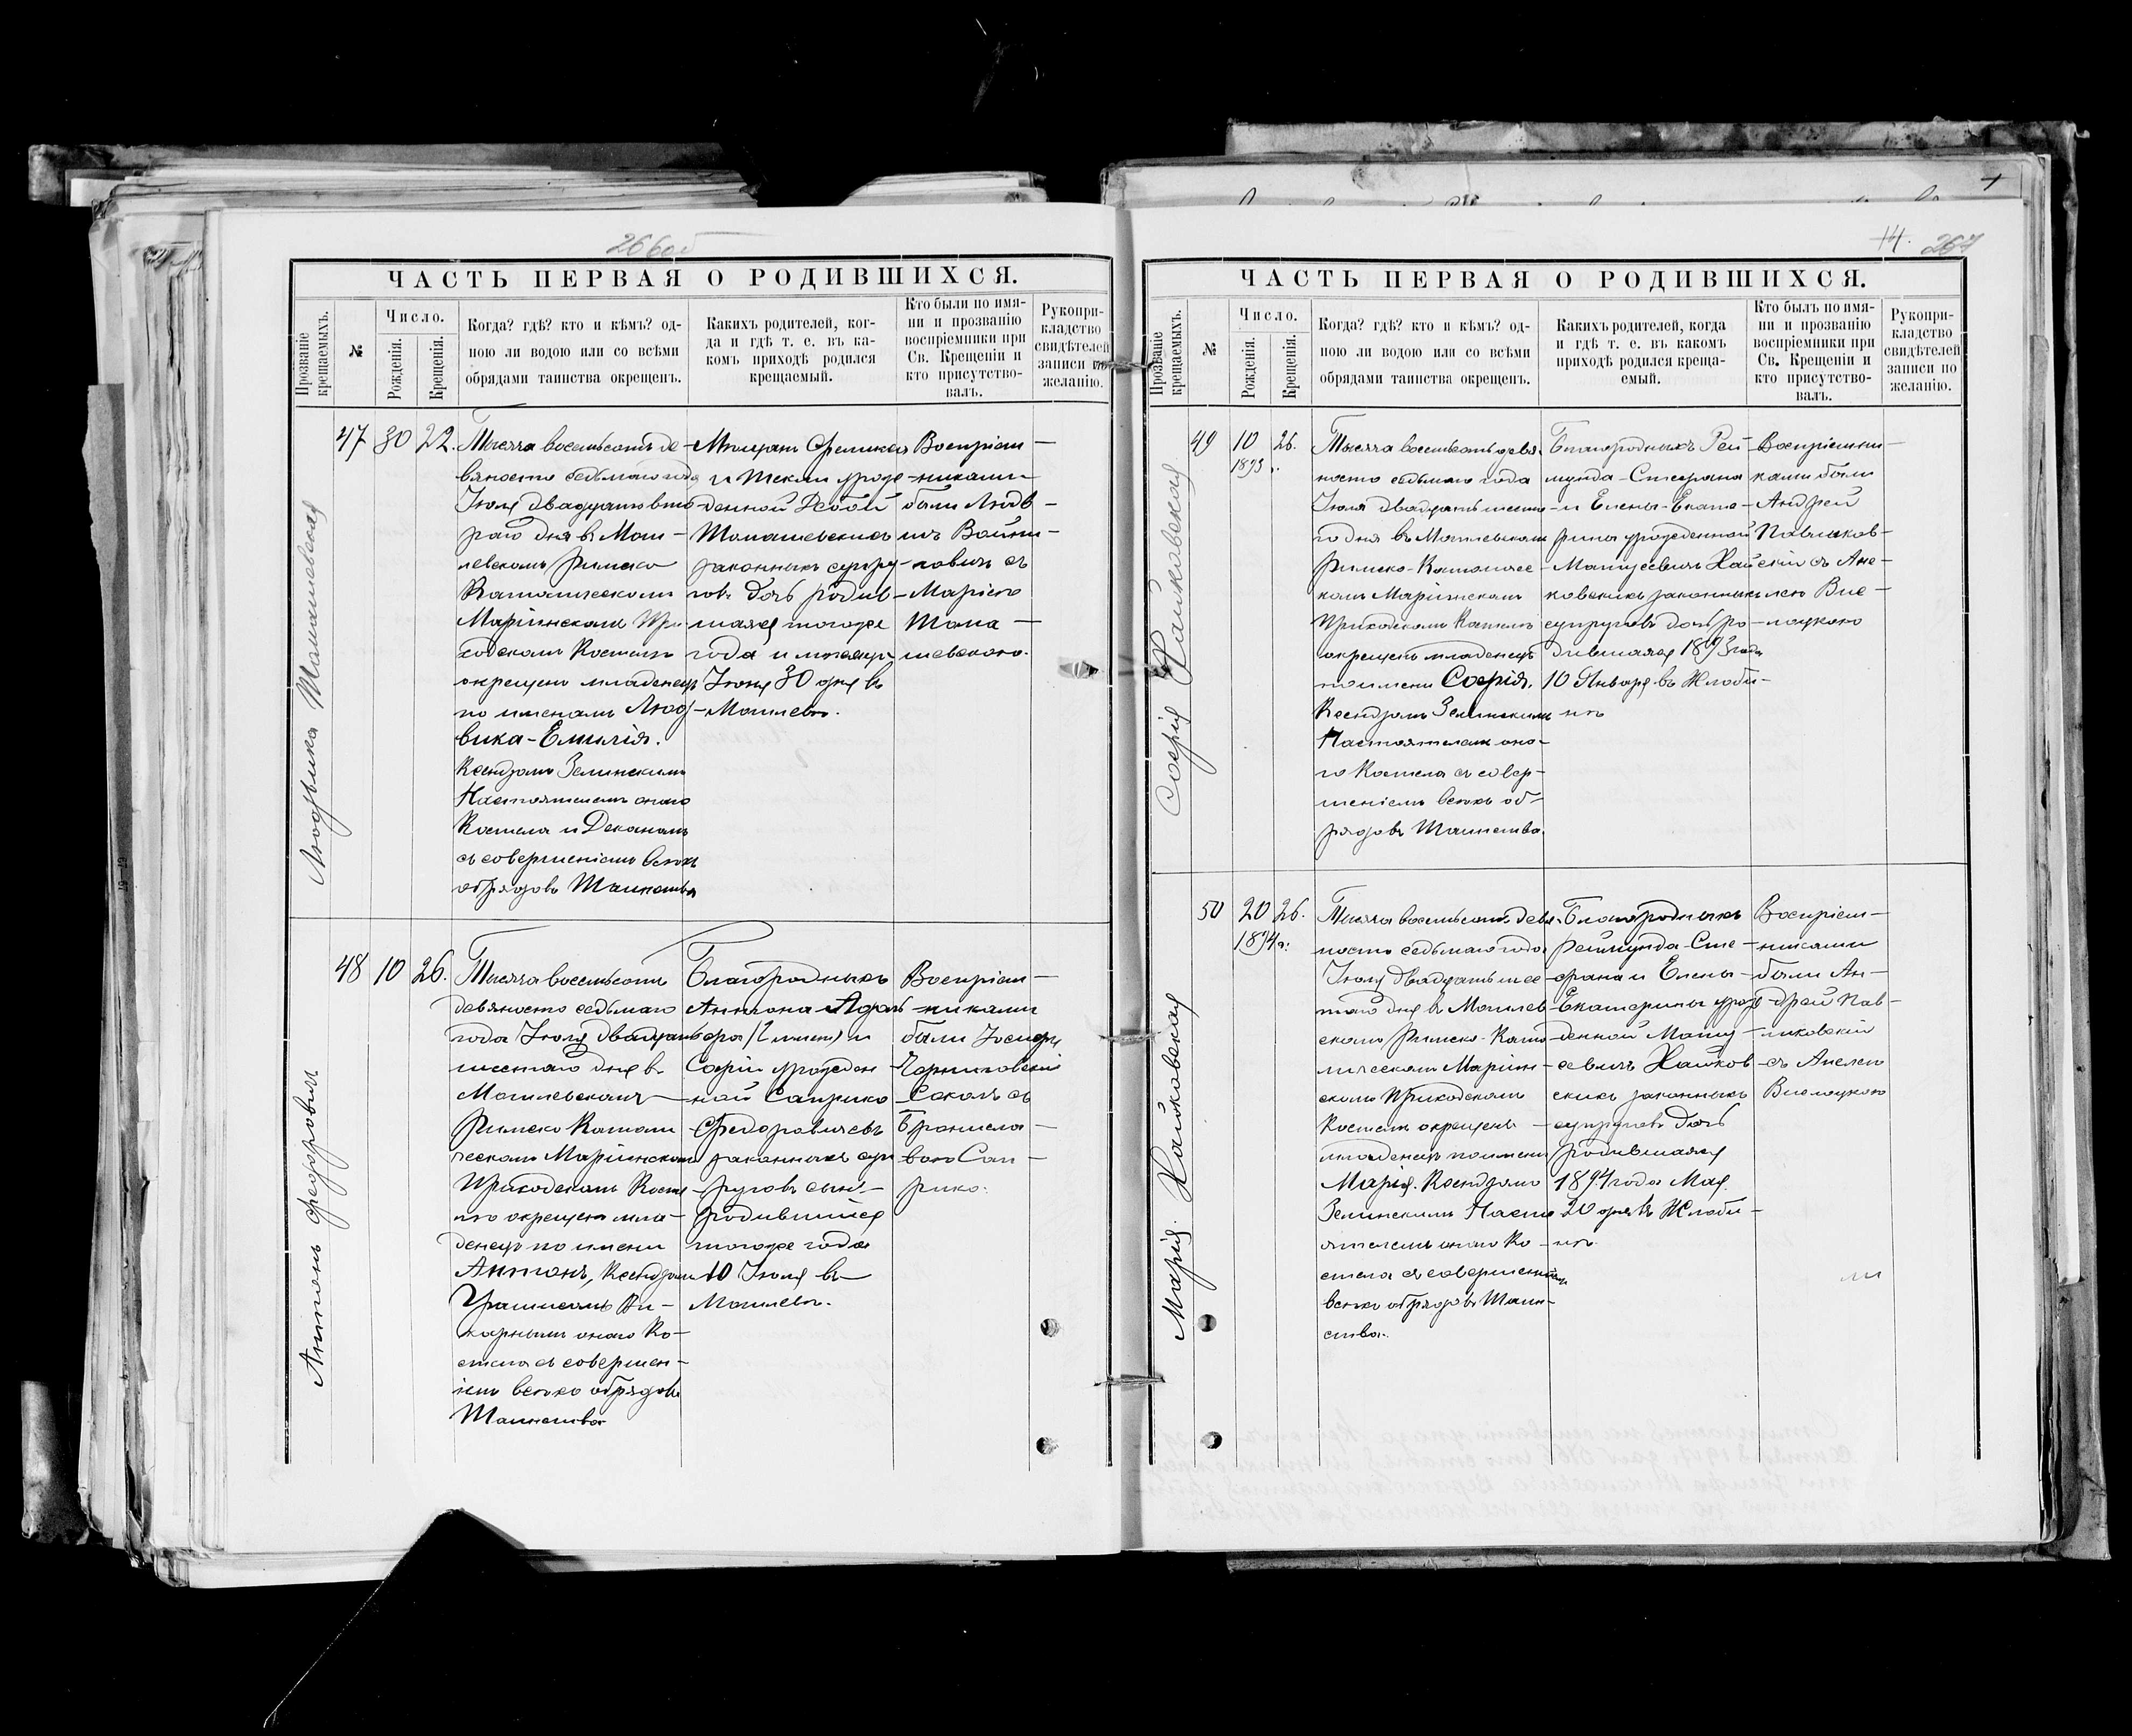 266об
ЧАСТЬ ПЕРВАЯ О РОДИВШИХСЯ.
Прозваніе крещаемыхъ.
№
Число.
Рожденія.
Крещенія.
Когда? гдѣ? кто и кѣмъ? од-
ною ли водою или со всѣми
обрядами таинства окрещенъ.
Какихъ родителей, ког-
да и гдѣ т. е. въ ка-
комъ приходѣ родился
крещаемый.
Кто были по имя-
ни и прозванію
воспріемники при
Св. Крещеніи и
кто присутство-
валъ.
Рукопри-
кладство
свидѣтелей
записи по
желанію.
Людвика Томашевская
47 30 22.
Тысяча восемьсотъ де-
вяносто седьмого года
Іюля двадцать вто
рого дня въ Моги-
левскомъ Римско
Католическомъ
Маріинскомъ При-
ходскомъ Костелѣ
окрещенъ младенецъ
по именамъ Люд-
вика-Емилія.
Ксендзомъ Зелинскимъ
Настоятелемъ онаго
Костела и Деканомъ
съ совершеніемъ всѣхъ
обрядовъ Таинства
Мѣщанъ Феликса
и Теклы урож-
денной
Томашевскихъ
законныхъ супру-
говъ дочь родив-
шаяся тогоже
года и мѣсяца
Іюня 30 дня въ
Могилевѣ.
Воспріем-
никами
были Людв-
игъ Война-
ловичъ съ
Маріею
Тома-
шевскою.
Антонъ Федоровичъ
48 10 26.
Тысяча восемьсотъ
девяносто седьмаго
года Іюля двадцать
шестаго дня въ
Могилевскомъ
Римско Католи
ческомъ Маріинскомъ
Приходскомъ Косте
лѣ окрещенъ мла-
денецъ по имени
Антонъ, Ксендзомъ
Ви-
карнымъ онаго Ко-
стела съ совершен-
іемъ всѣхъ обрядовъ
Таинства
Благородныхъ
Антона Адоль
фа (2 имени) и
Софіи урожден
ной Саприко
Федоровичевъ
законныхъ суп
руговъ сынъ
родившійся
тогоже года
10 Іюля въ
Могилевѣ.
Воспріем-
никами
были Іосифъ
Черниховскій
Соколъ съ
Брониславою
вою Сап-
рико.
14. 267
ЧАСТЬ ПЕРВАЯ О РОДИВШИХСЯ.
Прозваніе крещаемыхъ.
№
Число.
Рожденія.
Крещенія.
Когда? гдѣ? кто и кѣмъ? од-
ною ли водою или со всѣми
обрядами таинства окрещенъ.
Какихъ родителей, когда
и гдѣ т. е. въ какомъ
приходѣ родился креща-
емый.
Кто былъ по имя-
ни и прозванію
воспріемники при
Св. Крещеніи и
кто присутство-
валъ.
Рукопри-
кладство
свидѣтелей
записи по
желанію.
Софія Хайковская
49 10 26.
1893 г.
Тысяча восемьсотъ девя-
носто седьмаго года
Іюля двадцать шеста-
го дня въ Могилевскомъ
Римско-Католичес-
комъ Маріинскомъ
Приходскомъ Костелѣ
окрещенъ младенецъ
по имени Софія.
Ксендзомъ Зелинскимъ
Настоятелемъ она-
го Костела съ совер-
шеніемъ всѣхъ об-
рядовъ Таинства.
Благородныхъ Рей-
мунда-Стефана
и Елены-Екате-
рины урожденной
Матусевичъ Хай
ковскихъ законныхъ
супруговъ дочь ро-
дившаяся 1893 года
10 Января въ Жлоби-
нѣ
Воспріемни-
ками были
Андрей
Павликов-
скій съ Ане-
лею Вис-
лоцкою
Марія. Хайковская
50 20 26.
1894 г.
Тысяча восемьсотъ девя-
носто седьмаго года
Іюля двадцать шес-
таго дня въ Могилев-
скомъ Римско-Като-
лическомъ Маріин-
скомъ Приходскомъ
Костелѣ окрещенъ
младенецъ по имени
Марія. Ксендзомъ
Зелинскимъ Насто
ятелемъ онаго Ко-
стела съ совершеніемъ
всѣхъ обрядовъ Таин-
ства.
Благородныхъ
Реймунда-Сте-
фана и Елены-
Екатерины урож-
денной Мату-
севичъ Хайков-
скихъ законныхъ
супруговъ дочь
родившаяся
1894 года Мая
20 дня въ Жлоби-
нѣ.
Воспріем-
никами
были Ан-
дрей Пав-
ликовскій
съ Анелею
Вислоцкою